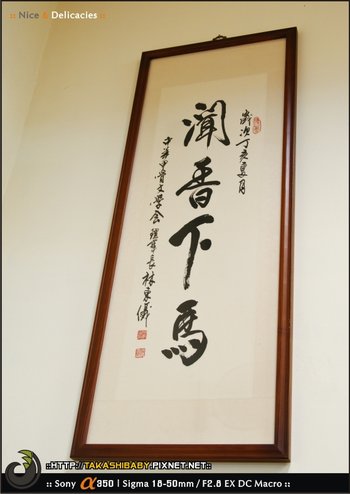 :: Nice & Delicacies ::
歲次丁亥夏月
聞香下馬
中華甲骨文學會 理事長 林東儀
::HTTP://TAKASHIBABY.PIXNET.NET::
:: Sony α350 | Sigma 18-50mm / F2.8 EX DC Macro ::